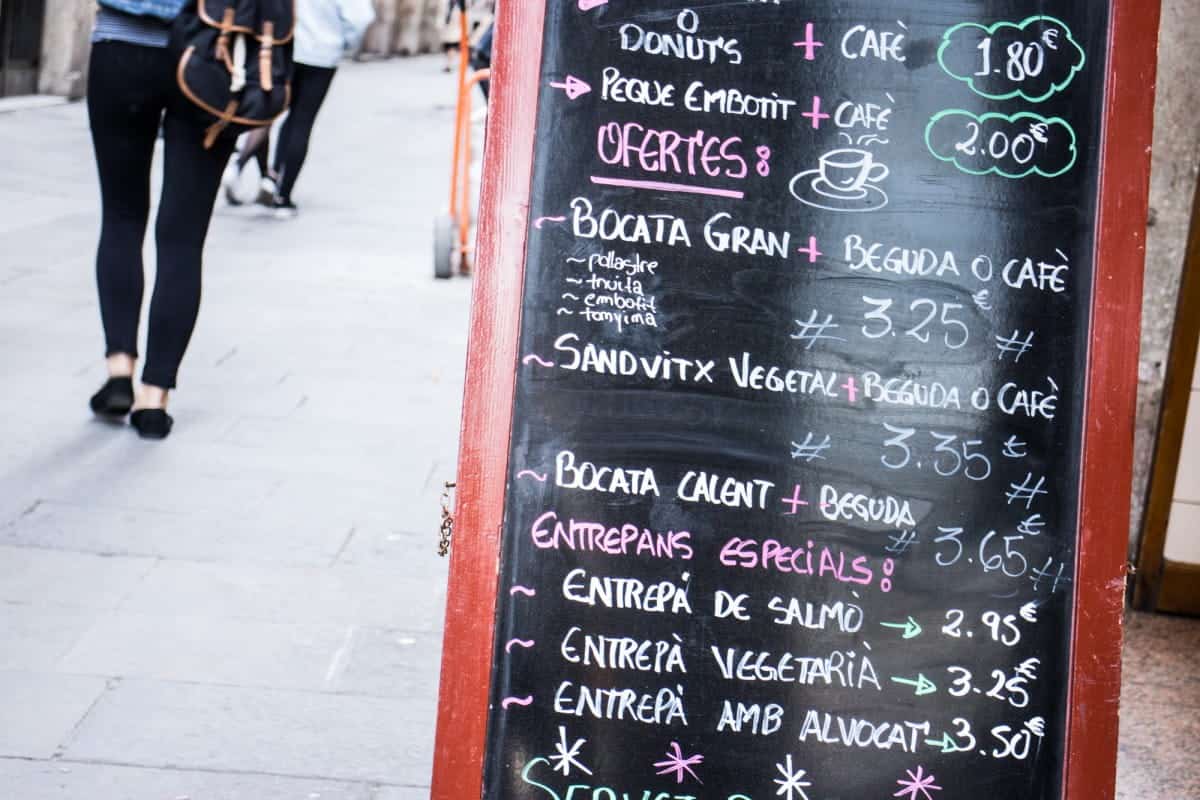 O
DONUT'S + CAFÈ 1.80€
PEQUE EMBOTIT + CAFÈ 2.00€
OFERTES:
~ BOCATA GRAN + BEGUDA O CAFÈ
~ pollastre
~ truita
~ embotit
~ tonyina
# 3.25€ #
~ SANDVITX VEGETAL + BEGUDA O CAFÈ
# 3.35€ #
~ BOCATA CALENT + BEGUDA
# 3.65€ #
ENTREPANS ESPECIALS:
~ ENTREPÀ DE SALMÒ → 2.95€
~ ENTREPÀ VEGETARIÀ → 3.25€
~ ENTREPÀ AMB ALVOCAT → 3.50€